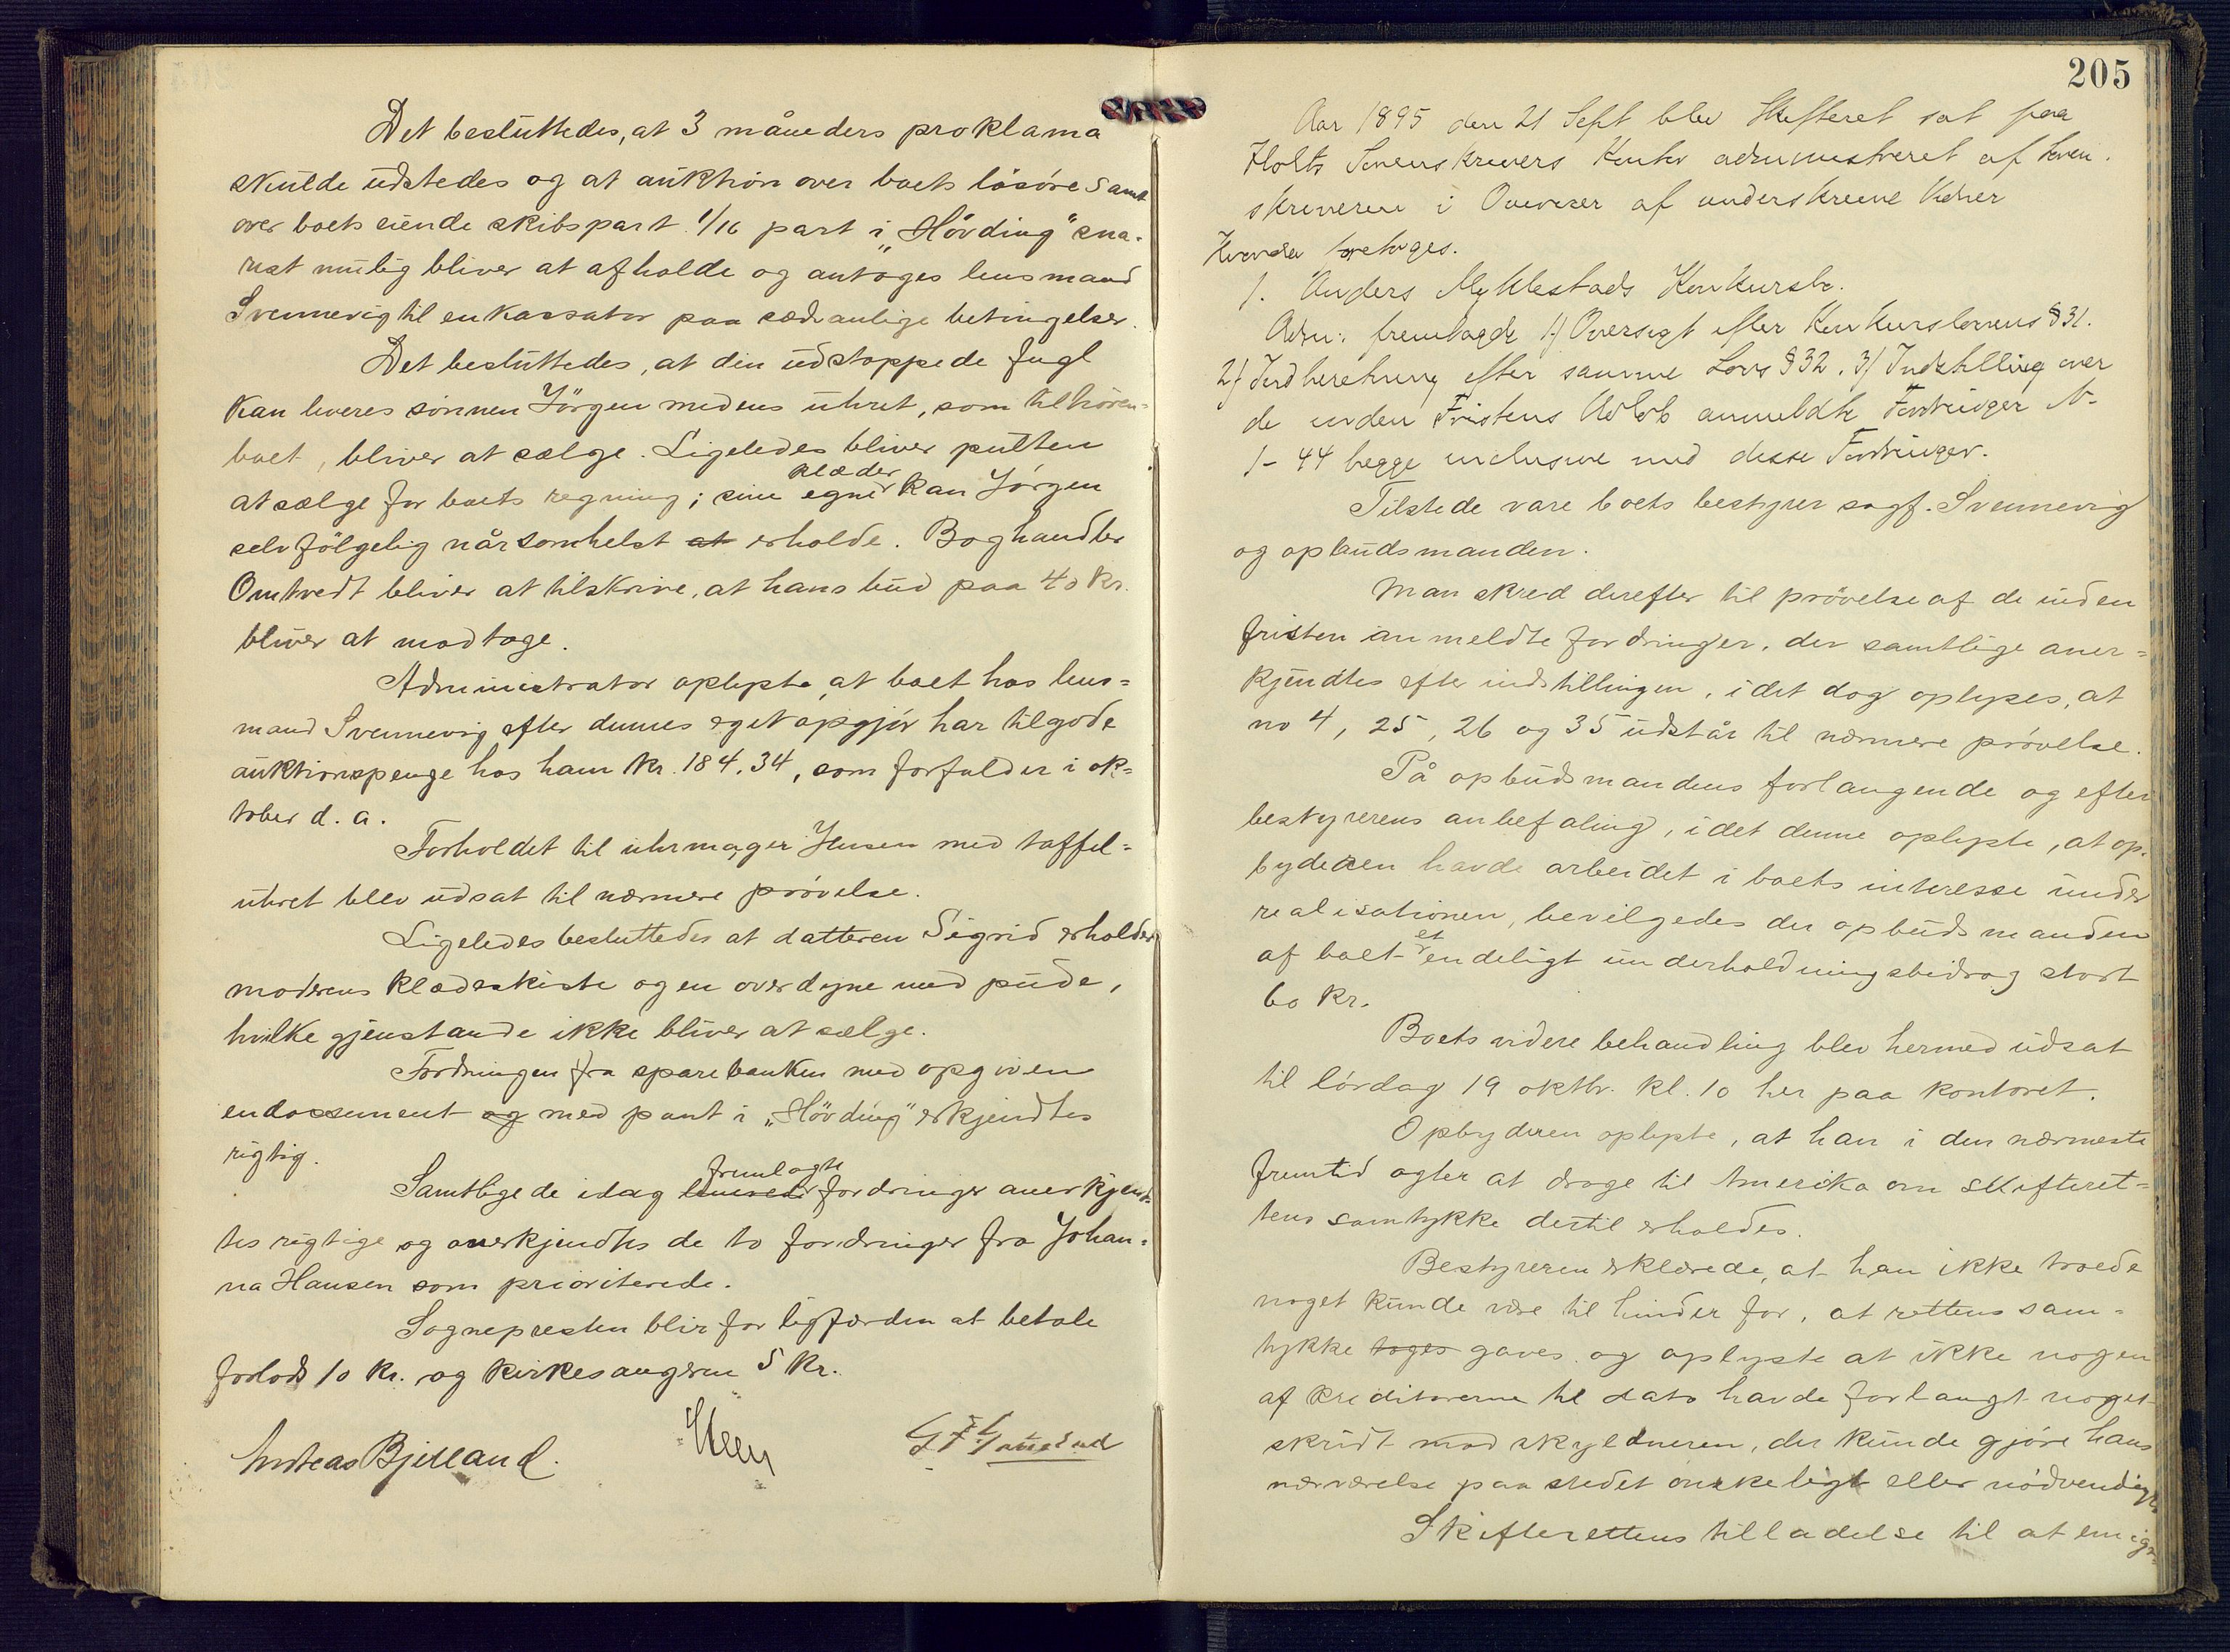 Det besluttedes, at 3 måneders proklama
skulde udstedes og at auktion over boets løsøre samt
over boets eiende skibspart 1/16 part i „Hövding" sna-
rest mulig bliver at afholde og antoges lensmand
Svennevig til enkassator paa sædvanlige betingelser.
Det besluttedes, at den udstoppede fugl
kan leveres sønnen Jörgen medens uhret, som tilhören-
boet, bliver at sælge. Ligeledes bliver pulten
at sælge for boets regning; sine egne klæder kan Jörgen
selvfölgelig nårsomhelst at erholde. Boghandler
Omtvedt bliver at tilskrive, at hans bud paa 40 kr.
bliver at modtage.
Administrator oplyste at boet hos lens=
mand Svennevig efter dennes eget opgjör har tilgode
auktionspenge hos ham kr. 184.34, som forfalder i ok=
tober d. a.
Forholdet til uhrmager Jensen med taffel=
uhret blev udsat til nærmere prövelse.
Ligeledes besluttedes at datteren Sigrid erholder
moderens klædeskiste og en overdyne med pude,
hvilke gjenstande ikke bliver at sælge.
Fordringen fra sparebanken med opgiven
endossement og med pant i „Hövding" erkjendtes
rigtig.
Samtlige de idag fremlagte fordringer anerkjend-
tes rigtige og anerkjendtes de to fordringer fra Johan=
na Hansen som prioriterede.
Sognepresten blir for ligfærden at betale
forlods 10 kr. og kirkesangeren 5 kr.
Andreas Bjelland.
205
Aar 1895 den 21 Sept blev Skifteret sat paa
Holts Sorenskrivers Kontor administreret af Soren.
skriveren i Overvær af underskrevne Vidner
Hvorda foretoges.
1. Anders Myklestads Konkursbo.
Adm: fremlagde 1) Oversigt efter Konkurslovens § 31.
2) Indberetning efter samme Lovs § 32. 3) Indstilling over
de inden Fristens Udløb anmeldte Fordringer No
1-44 begge inclusive med disse Fordringer.
Tilstede vare boets bestyrer sagf. Svennevig
og opbudsmanden.
Man skred derefter til prövelse af de inden
fristen anmeldte fordringer, der samtlige aner=
kjendtes efter indstillingen, idet dog oplyses, at
no 4, 25, 26 og 35 udstår til nærmere prövelse.
På opbudsmandens forlangende og efter
bestyrerens anbefaling, idet denne oplyste, at op.
byderen havde arbeidet i boets interesse under
realisationen, bevilgedes der opbudsmanden
af boet et endeligt underholdningsbidrag stort
60 kr.
Boets videre behandling blev hermed udsat
til lördag 19 oktbr. kl. 10 her paa kontoret.
Opbyderen oplyste, at han i den nærmeste
fremtid agter at drage til Amerika om skifteret=
tens samtykke dertil erholdes.
Bestyreren erklærede, at han ikke troede
noget kunde være til hinder for, at rettens sam=
tykke toges gaves og oplyste at ikke nogen
af kreditorerne til dato havde forlangt noget
skridt mod skyldneren, der kunde gjöre hans
nærværelse paa stedet önskeligt eller nödvendigt.
Skifterettens tilladelse til at emigr=